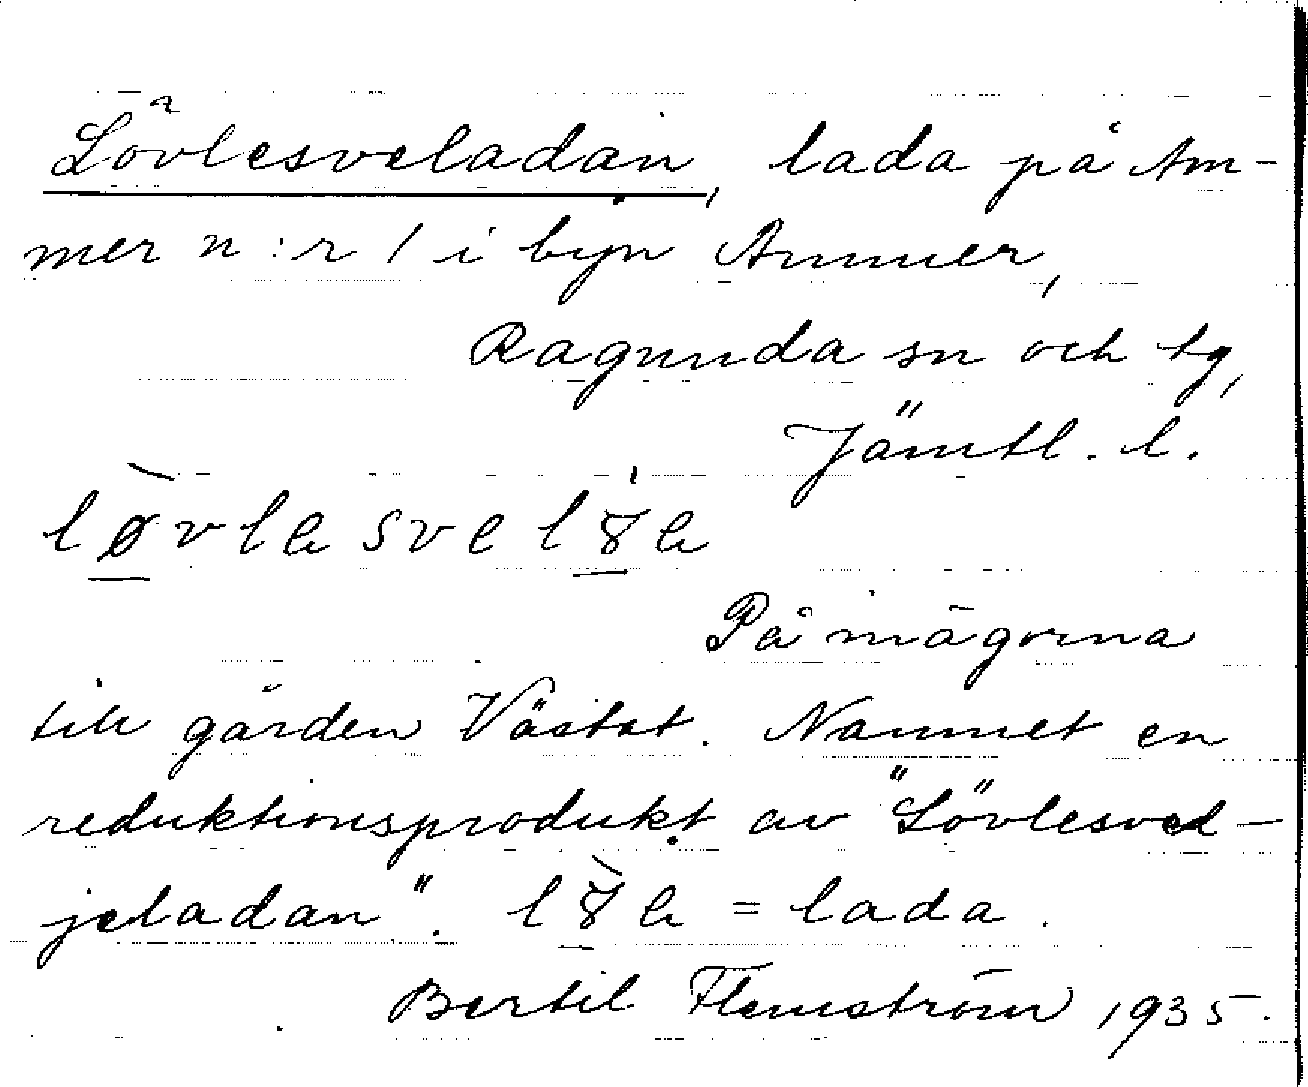 Lövlesveladan, lada på Am-
mer n:r 1 i byn Ammer,
Ragunda sn och tg,
Jämtl. l.
På mägorna
till gården Västat. Namnet en
reduktionsprodukt av "Lövlesvel-
jeladan". = lada.
Bertil Flemström 1935.